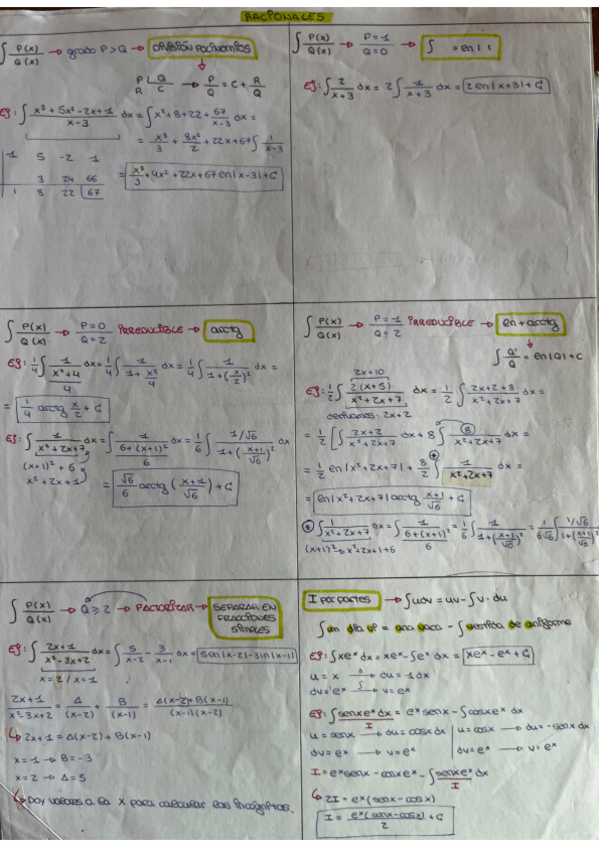 RACIONALES
∫ P(x)/Q(x) → grado P>Q → DIVISIÓN POLINOMIOS
P |Q
R C → P/Q = C + R/Q
Ej: ∫ (x³+5x²-2x+1)/(x-3) dx = ∫ x²+8+22+ 67/(x-3) dx =
= x³/3 + 8x²/2 + 22x+67 ∫ 1/(x-3)
1 5 -2 1
3 24 66
1 8 22 67
= x³/3 + 4x² + 22x + 67 en|x-3| + C
∫ P(x)/Q(x) → P=1 Q=0 → ∫ = en| |
Ej: ∫ 2/(x+3) dx = 2 ∫ 1/(x+3) dx = 2 en|x+3| + C
∫ P(x)/Q(x) → P=0 Q=2 IRREDUCIBLE → arctg
Ej: 1/4 ∫ 1/((x²+4)/4) dx = 1/4 ∫ 1/(1+x²/4) dx = 1/4 ∫ 1/(1+(x/2)²) dx =
= 1/4 arctg x/2 + C
Ej: ∫ 1/(x²+2x+7) dx = ∫ 1/((6+(x+1)²)/6) dx = 1/6 ∫ (1/√6)/(1+((x+1)/√6)²) dx
(x+1)² + 6
x² + 2x + 1
= √6/6 arctg ((x+1)/√6) + C
∫ P(x)/Q(x) → P=1 Q=2 IRREDUCIBLE → en + arctg
∫ Q'/Q = en|Q| + C
2x+10
Ej: 1/2 ∫ 2(x+5)/(x²+2x+7) dx = 1/2 ∫ (2x+2+8)/(x²+2x+7) dx =
derivamos: 2x+2
= 1/2 [∫ (2x+2)/(x²+2x+7) dx + 8 ∫ 8/(x²+2x+7) =
= 1/2 en|x²+2x+7| + 8/2 ∫ 1/(x²+2x+7) dx =
= en|x²+2x+7| arctg (x+1)/√6 + C
∫ 1/(x²+2x+7) dx = ∫ 1/((6+(x+1)²)/6) = 1/6 ∫ 1/(1+((x+1)/√6)²) = 1/(6√6) ∫ (1/√6)/(1+((x+1)/√6)²)
(x+1)² → x²+2x+1+6
∫ P(x)/Q(x) → Q≥2 → FACTORIZAR → SEPARAR EN
FRACCIONES
SIMPLES
Ej: ∫ (2x+1)/(x²-3x+2) dx = ∫ 5/(x-2) - 3/(x-1) dx = 5en|x-2|-3in|x-1|
x=2 / x=1
(2x+1)/(x²-3x+2) = A/(x-2) + B/(x-1) = (A(x-2)+B(x-1))/((x-1)(x-2))
↳ 2x+1 = A(x-2) + B(x-1)
x=1 → B=-3
x=2 → A=5
↳ Doy valores a la x para calcular las incógnitas.
I por partes → ∫udv = uv - ∫v·du
∫un día vi = una vaca - ∫vestida de uniforme
Ej: ∫xeˣ dx = xeˣ - ∫eˣ dx = xeˣ - eˣ + C
u = x → du = 1dx
dv = eˣ → v = eˣ
Ej: ∫senxeˣ dx = eˣ senx - ∫cosxeˣ dx
I
u = senx → du = cosx dx | u = cosx → du = -senx dx
dv = eˣ → v = eˣ | dv = eˣ → v = eˣ
I = eˣ senx - cosxeˣ - ∫senxeˣ dx
I
↳ 2I = eˣ(senx - cosx)
I = eˣ(senx - cosx)/2 + C